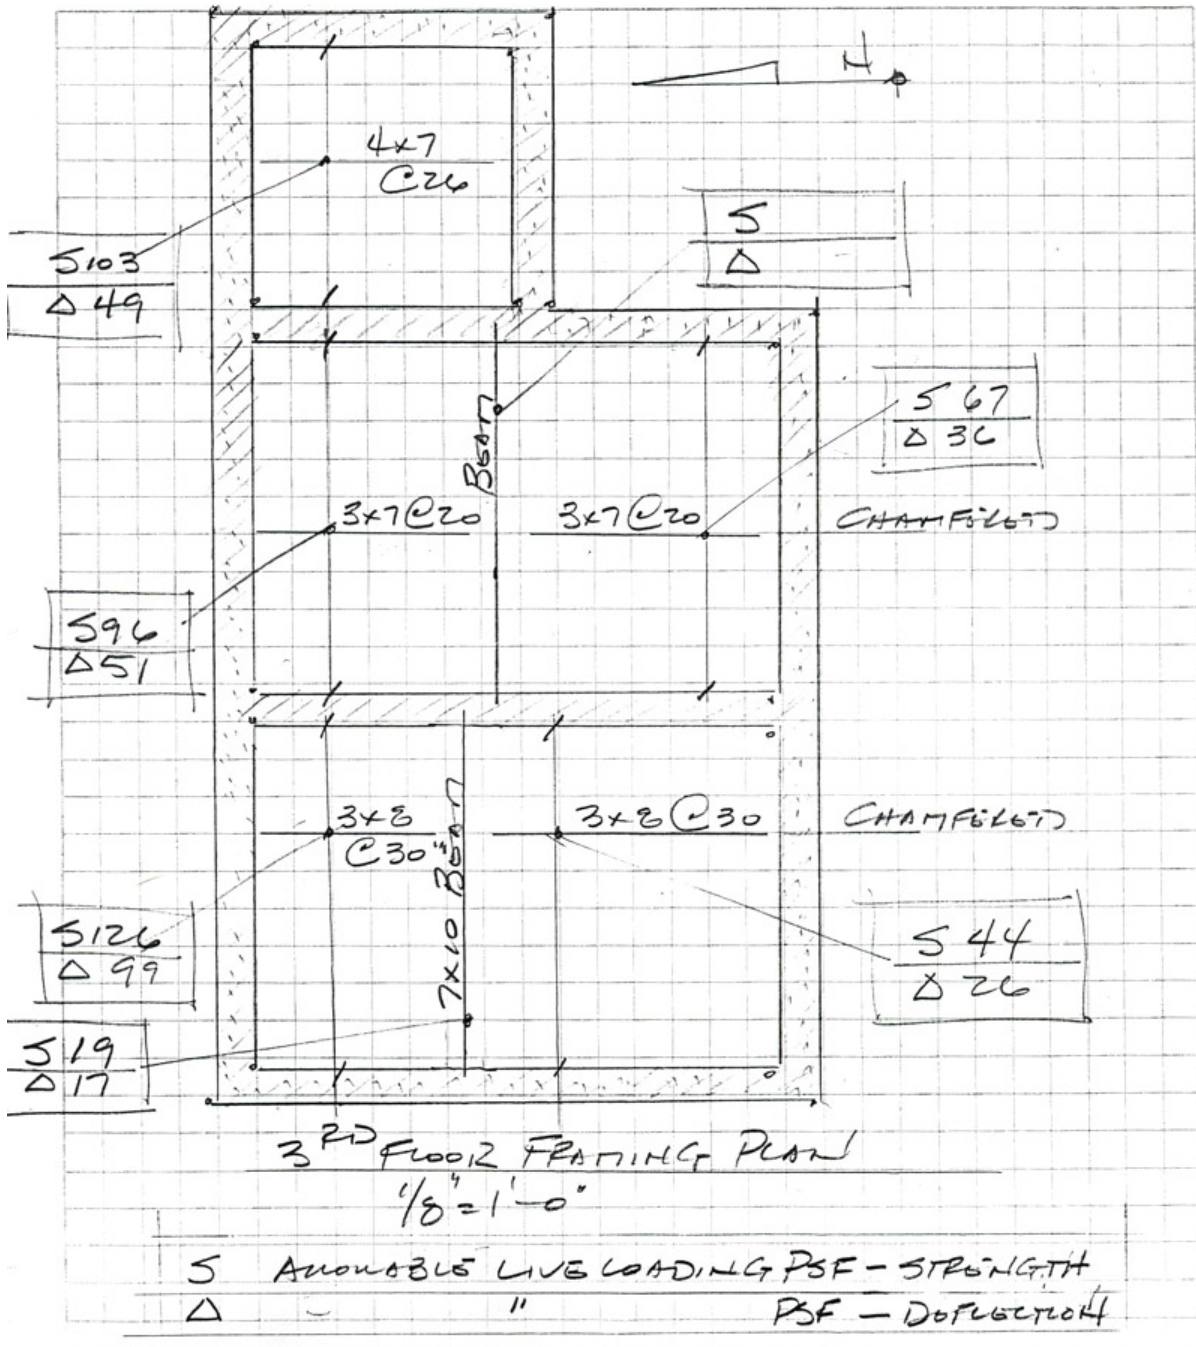 N
4x7
@26
S
Δ
S 103
Δ 49
S 67
Δ 36
BEAM
3x7@20
3x7@20
CHAMFERED
S96
Δ51
3x8
@30"
7x10 BEAM
3x8@30
CHAMFERED
S126
Δ 99
S 44
Δ 26
S 19
Δ 17
3RD FLOOR FRAMING PLAN
1/8" = 1'-0"
S ALLOWABLE LIVE LOADING PSF - STRENGTH
Δ " PSF - DEFLECTION